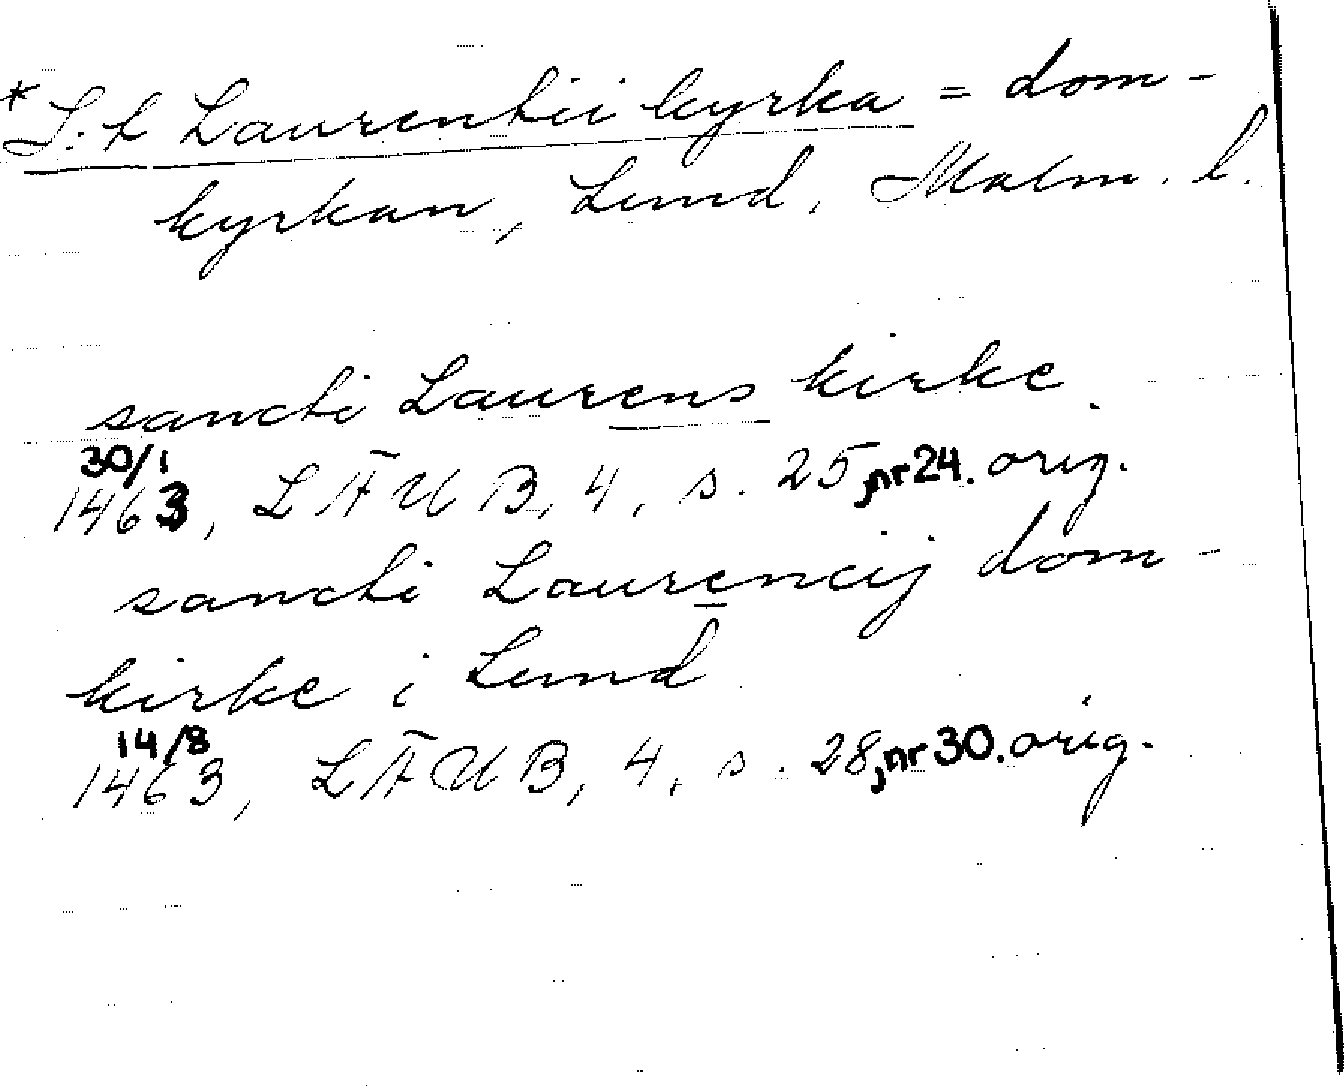 * S:t Laurentii kyrka = dom-
kyrkan, Lund, Malm. l.
sancti Laurens kirke.
30/1
1463, LÄUB, 4, s. 25, nr 24. orig.
sancti Laurencij dom-
kirke i Lund
14/8
1463, LÄUB, 4, s. 28, nr 30. orig.